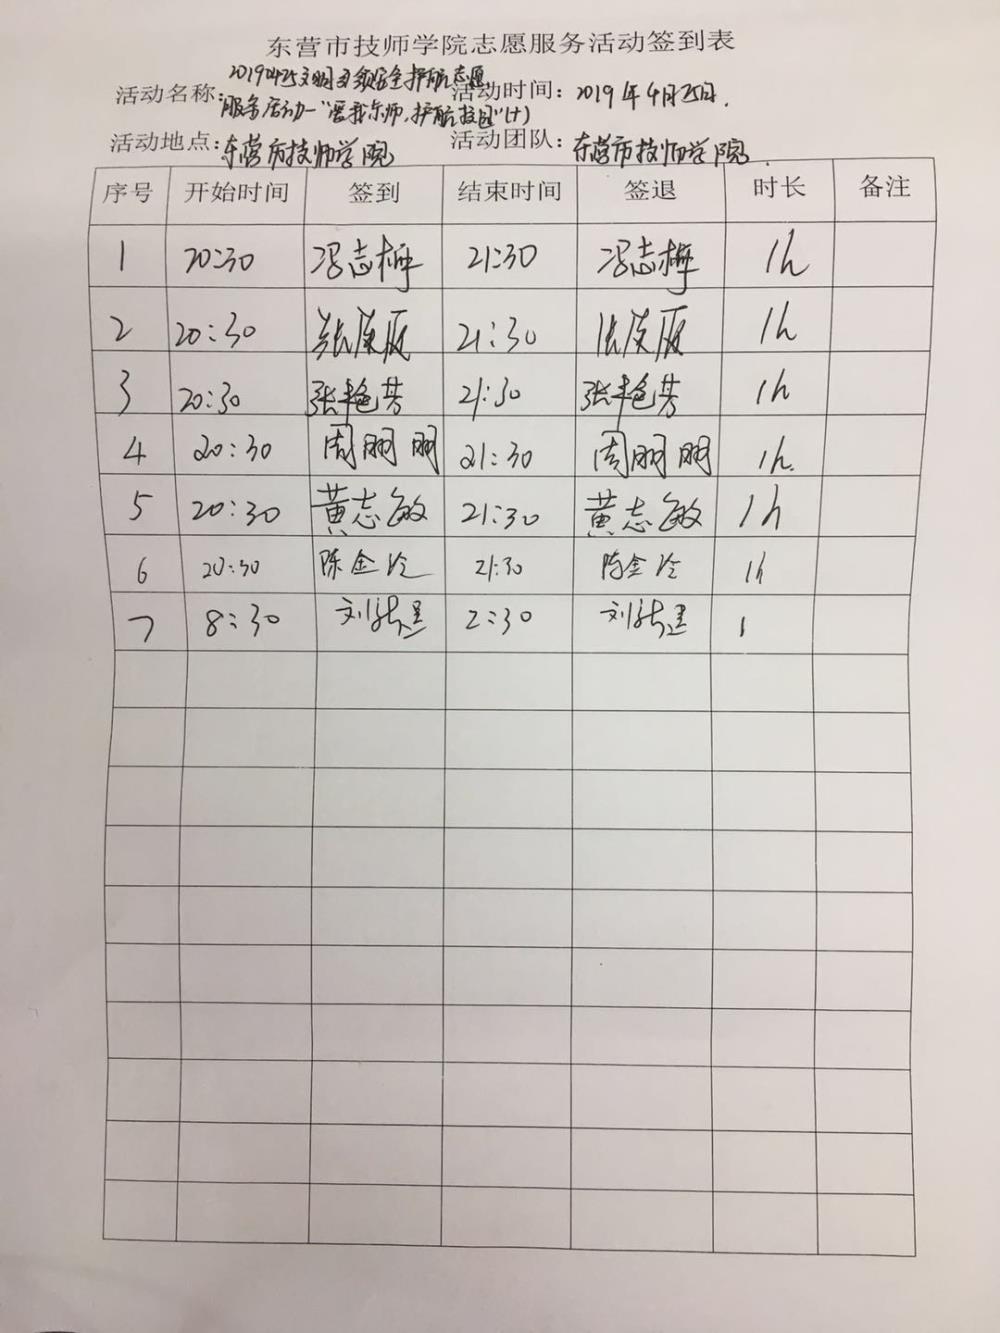 东营市技师学院志愿服务活动签到表
活动名称: 20190425文明 安全护航志愿 活动时间: 2019年4月25日.
服务活动—"爱我东师,护航技园"(十)
活动地点: 东营市技师学院 活动团队: 东营市技师学院.
序号 开始时间 签到 结束时间 签退 时长 备注
1 20:30 冯志梅 21:30 冯志梅 1h
2 20:30 张 21:30 张 1h
3 20:30 张艳芳 21:30 张艳芳 1h
4 20:30 周朋朋 21:30 周朋朋 1h.
5 20:30 黄志敏 21:30 黄志敏 1h
6 20:30 陈金冷 21:30 陈金冷 1h
7 8:30 刘 2:30 刘 1